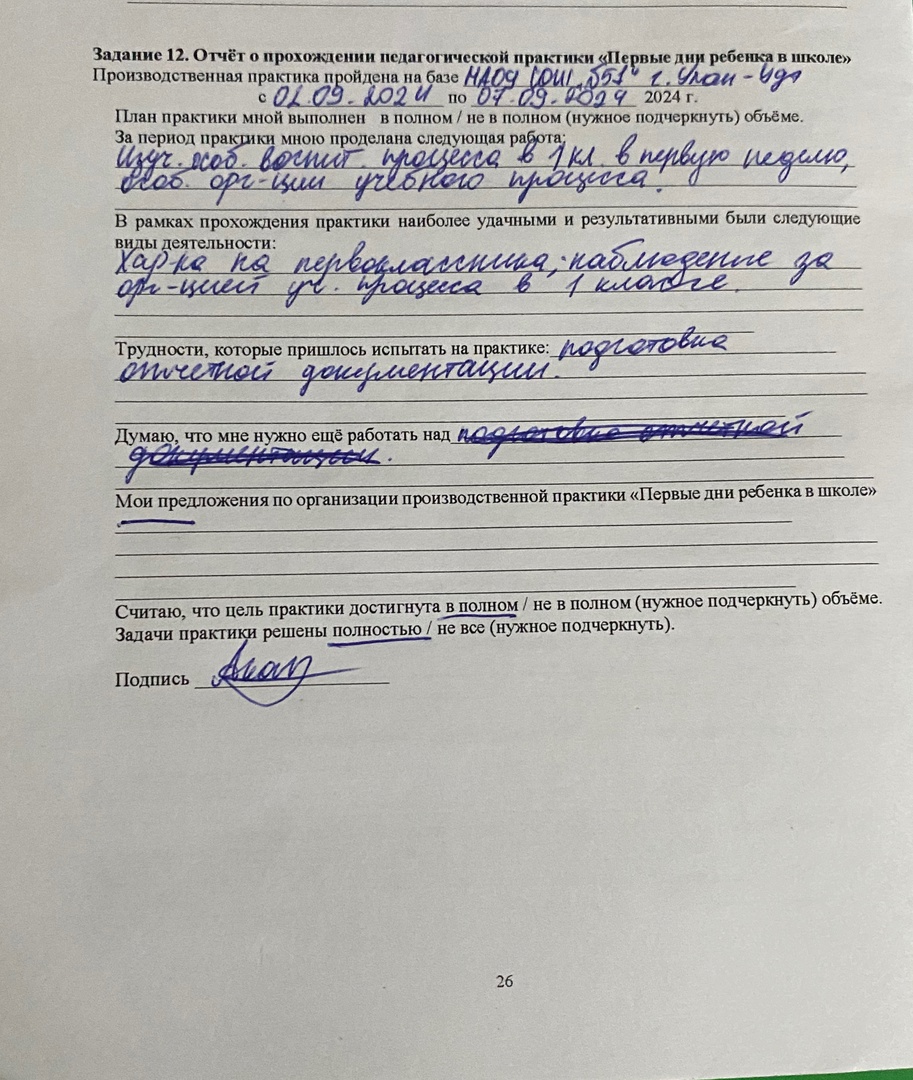 Задание 12. Отчёт о прохождении педагогической практики «Первые дни ребенка в школе»
Производственная практика пройдена на базе МАОУ СОШ №51" г. Улан-Удэ
с 02.09.2024 по 07.09.2024 2024 г.
План практики мной выполнен в полном / не в полном (нужное подчеркнуть) объёме.
За период практики мною проделана следующая работа:
Изуч. особ. воспит. процесса в 1 кл. в первую неделю,
особ. орг-ции учебного процесса.
В рамках прохождения практики наиболее удачными и результативными были следующие
виды деятельности:
Хар-ка на первоклассника; наблюдение за
орг-цией уч. процесса в 1 классе.
Трудности, которые пришлось испытать на практике: подготовка
отчетной документации.
Думаю, что мне нужно ещё работать над подготовка отчетной
документации.
Мои предложения по организации производственной практики «Первые дни ребенка в школе»
Считаю, что цель практики достигнута в полном / не в полном (нужное подчеркнуть) объёме.
Задачи практики решены полностью / не все (нужное подчеркнуть).
Подпись
26